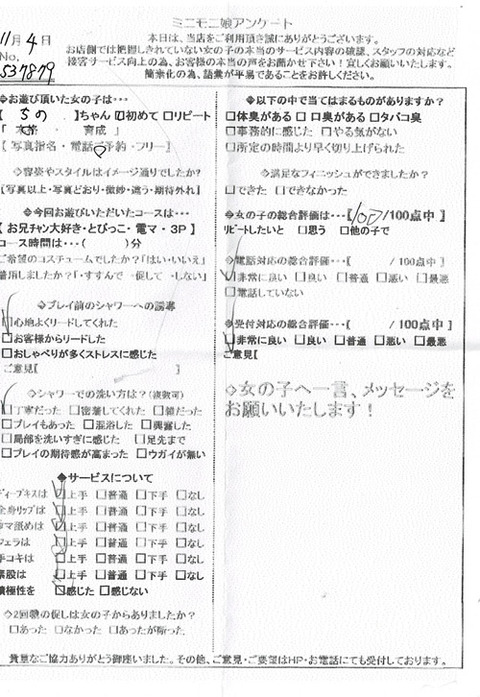 ミニモニ娘アンケート
本日は、当店をご利用頂き誠にありがとうございます。
お店側では把握しきれていない女の子の本当のサービス内容の確認、スタッフの対応など
接客サービス向上の為、お客様の本当の声をお聞かせ下さい！宜しくお願いいたします。
簡素化の為、語彙が平易であることをお許しください。
11月 4日
No.
537879
◇お遊び頂いた女の子は…
【 ちの 】ちゃん □初めて □リピート
「 本格 ・ 育成 」
【 写真指名・電話ご予約・フリー】
◇容姿やスタイルはイメージ通りでしたか?
【写真以上・写真どおり・微妙・違う・期待外れ】
◇今回お遊びいただいたコースは…
【 お兄チャン大好き・とびっこ・電マ・3P 】
コース時間は…( )分
ご希望のコスチュームでしたか?「はい・いいえ」
着用しましたか?「すすんで 促して しない」
◇プレイ前のシャワーへの誘導
□心地よくリードしてくれた
□お客様からリードした
□おしゃべりが多くストレスに感じた
ご意見[ ]
◇シャワーでの洗い方は?(複数可)
□丁寧だった □密着してくれた □雑だった
□プレイもあった □混浴した □興奮した
□局部を洗いすぎに感じた □足先まで
□プレイの期待感が高まった □ウガイが無い
◆サービスについて
ディープキスは □上手 □普通 □下手 □なし
全身リップは □上手 □普通 □下手 □なし
タマ舐めは □上手 □普通 □下手 □なし
フェラは □上手 □普通 □下手 □なし
手コキは □上手 □普通 □下手 □なし
素股は □上手 □普通 □下手 □なし
積極性を □感じた □感じない
◇2回戦の促しは女の子からありましたか?
□あった □なかった □あったが断った
◇以下の中で当てはまるものがありますか?
□体臭がある □口臭がある □タバコ臭
□事務的に感じた □やる気がない
□所定の時間より早く切り上げられた
◇満足なフィニッシュができましたか?
□できた □できなかった
◇女の子の総合評価は…【 100/100点中】
リピートしたいと □思う □他の子で
◇電話対応の総合評価…[ /100点中 ]
□非常に良い □良い □普通 □悪い □最悪
□電話していない
◇受付対応の総合評価…[ /100点中 ]
□非常に良い □良い □普通 □悪い □最悪
ご意見[ ]
◇女の子へ一言、メッセージを
お願いいたします！
貴重なご協力ありがとう御座いました。その他、ご意見・ご要望はHP・お電話にても受付しております。